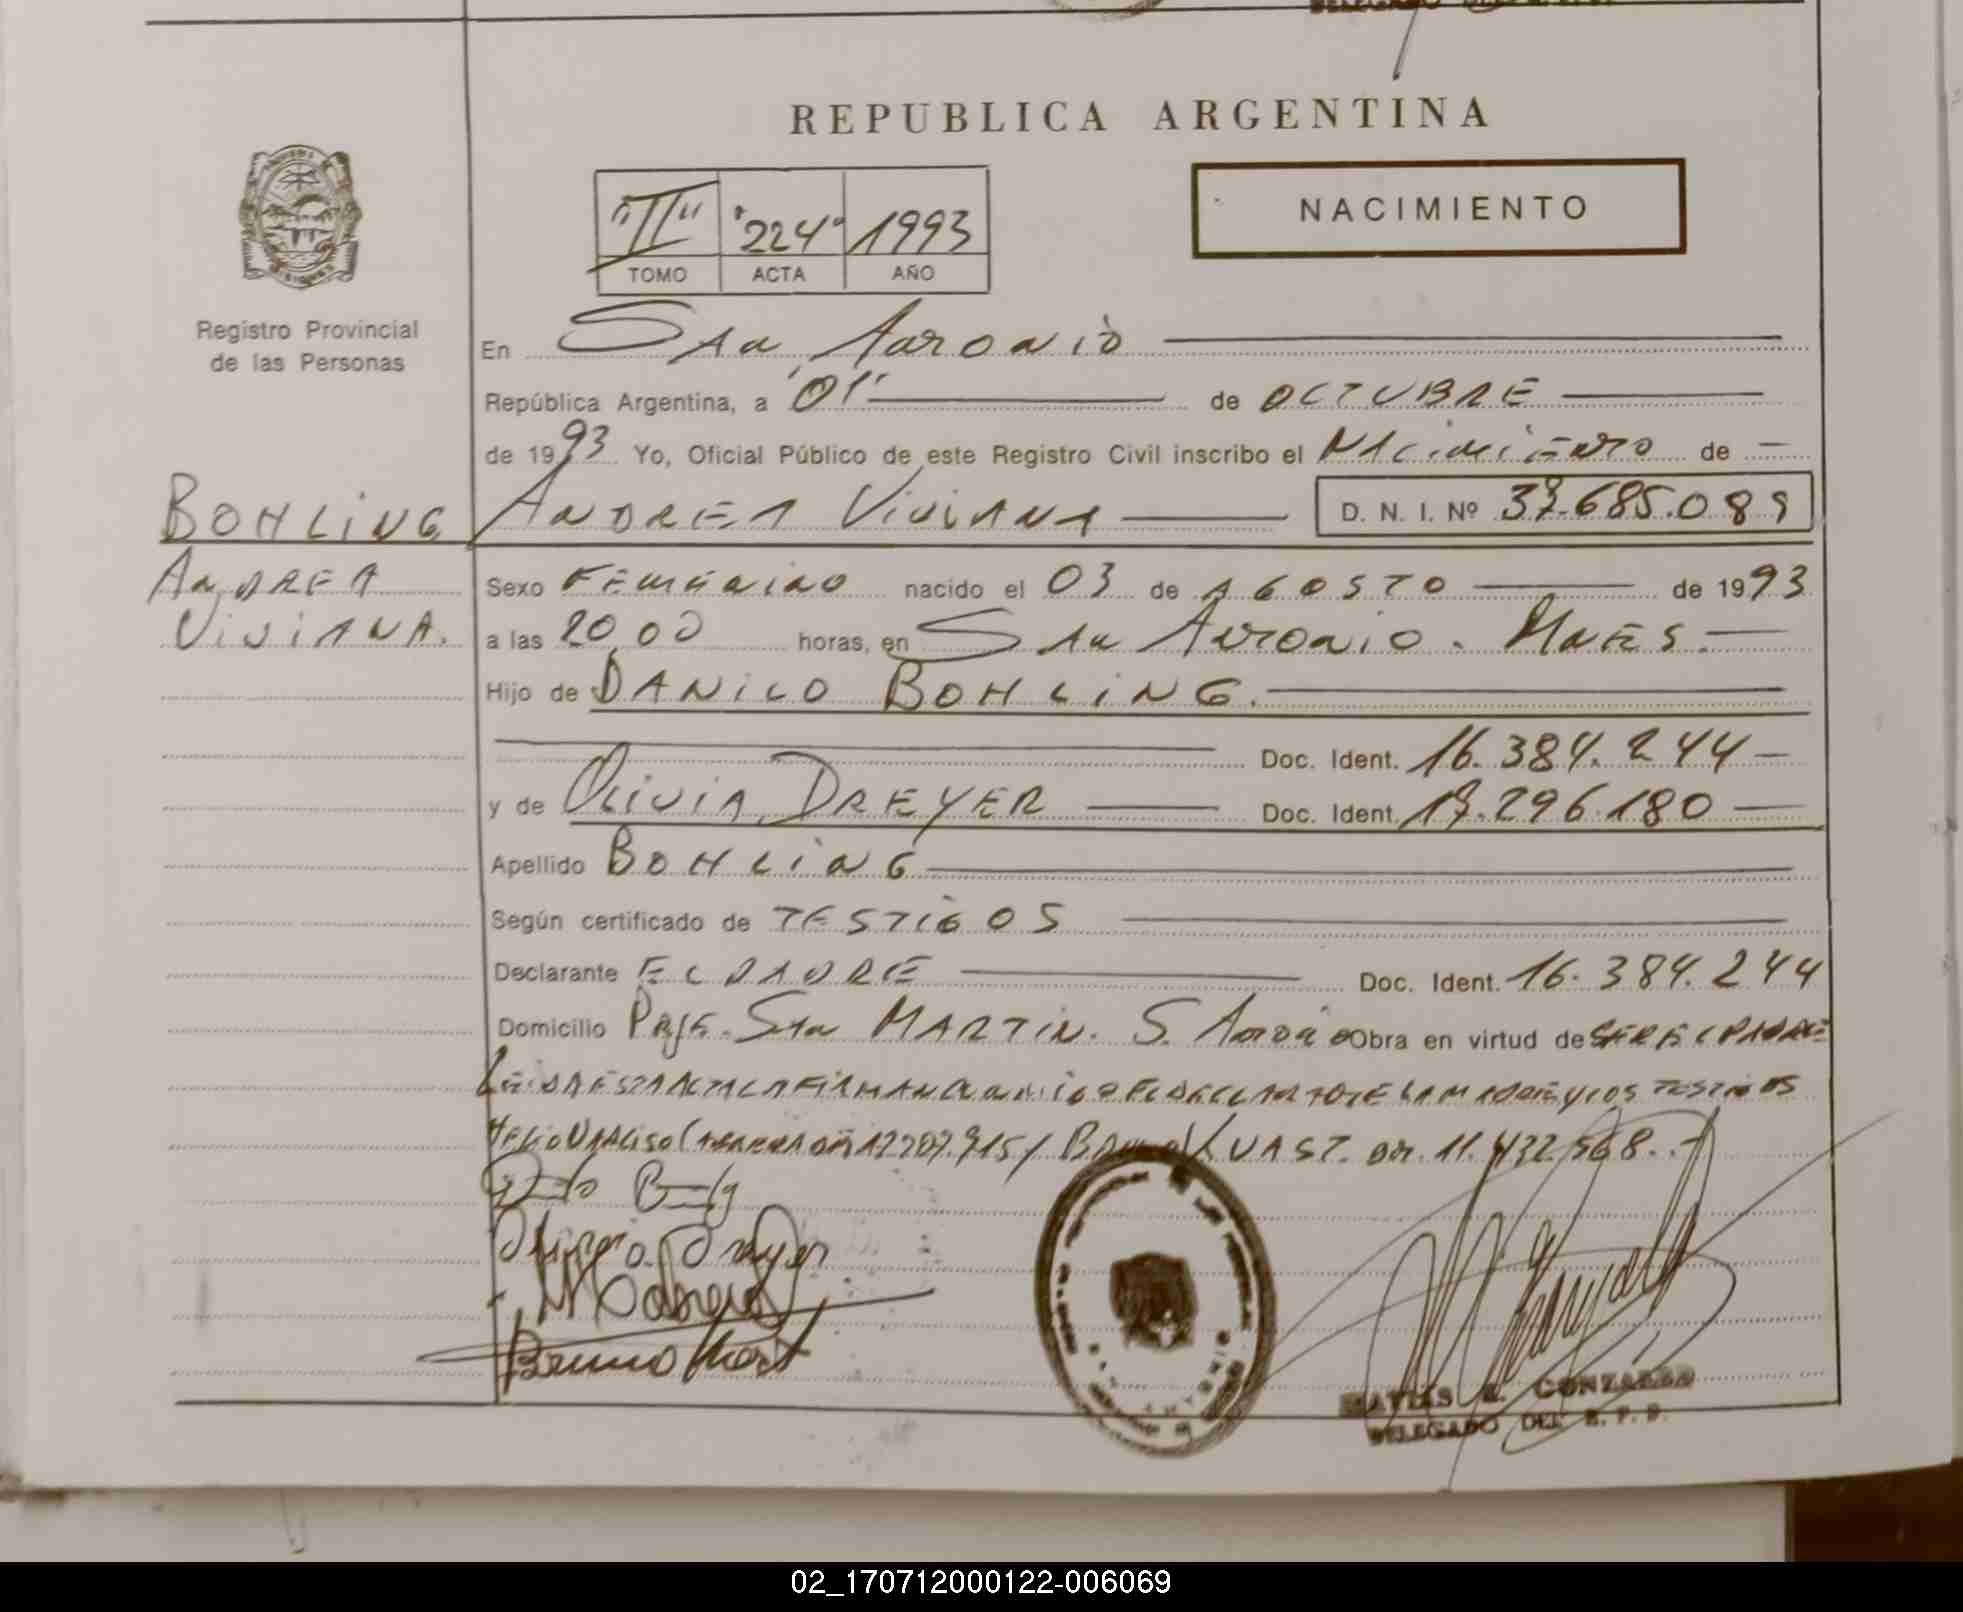 REPUBLICA ARGENTINA
"II" "224" 1993
TOMO ACTA AÑO
NACIMIENTO
Registro Provincial
de las Personas
En San Antonio
República Argentina, a "01" de OCTUBRE
de 1993 Yo, Oficial Público de este Registro Civil inscribo el Nacimiento de
BOHLING
ANDREA
VIVIANA.
ANDREA VIVIANA D. N. I. Nº 37.685.089
Sexo FEMENINO nacido el 03 de AGOSTO de 1993
a las 20,00 horas, en San Antonio. Mnes.
Hijo de DANILO BOHLING.
Doc. Ident. 16.384.244
y de OLIVIA DREYER Doc. Ident. 17.296.180
Apellido BOHLING
Según certificado de TESTIGOS
Declarante EL PADRE Doc. Ident. 16.384.244
Domicilio Pje. San MARTIN. S. Antonio Obra en virtud de SER EL PADRE
LEIDA ESTA ACTA LA FIRMAN CONMIGO EL DECLARANTE LA MADRE Y LOS TESTIGOS
KUAST. DNI. 11.432.568.
Bruno Kuast
GONZALEZ
DELEGADO DEL R. P. P.
02_170712000122-006069